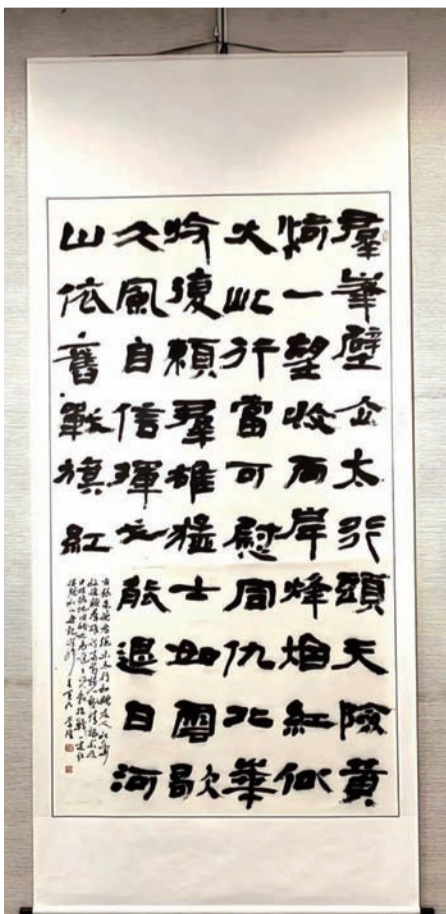 羣峯壁立太行頭天險黃
河一望收兩岸烽烟紅似
火此行當可慰同仇北華
收復賴羣雄猛士如雲歌
大風自信揮戈能退日河
山依舊戰旗紅